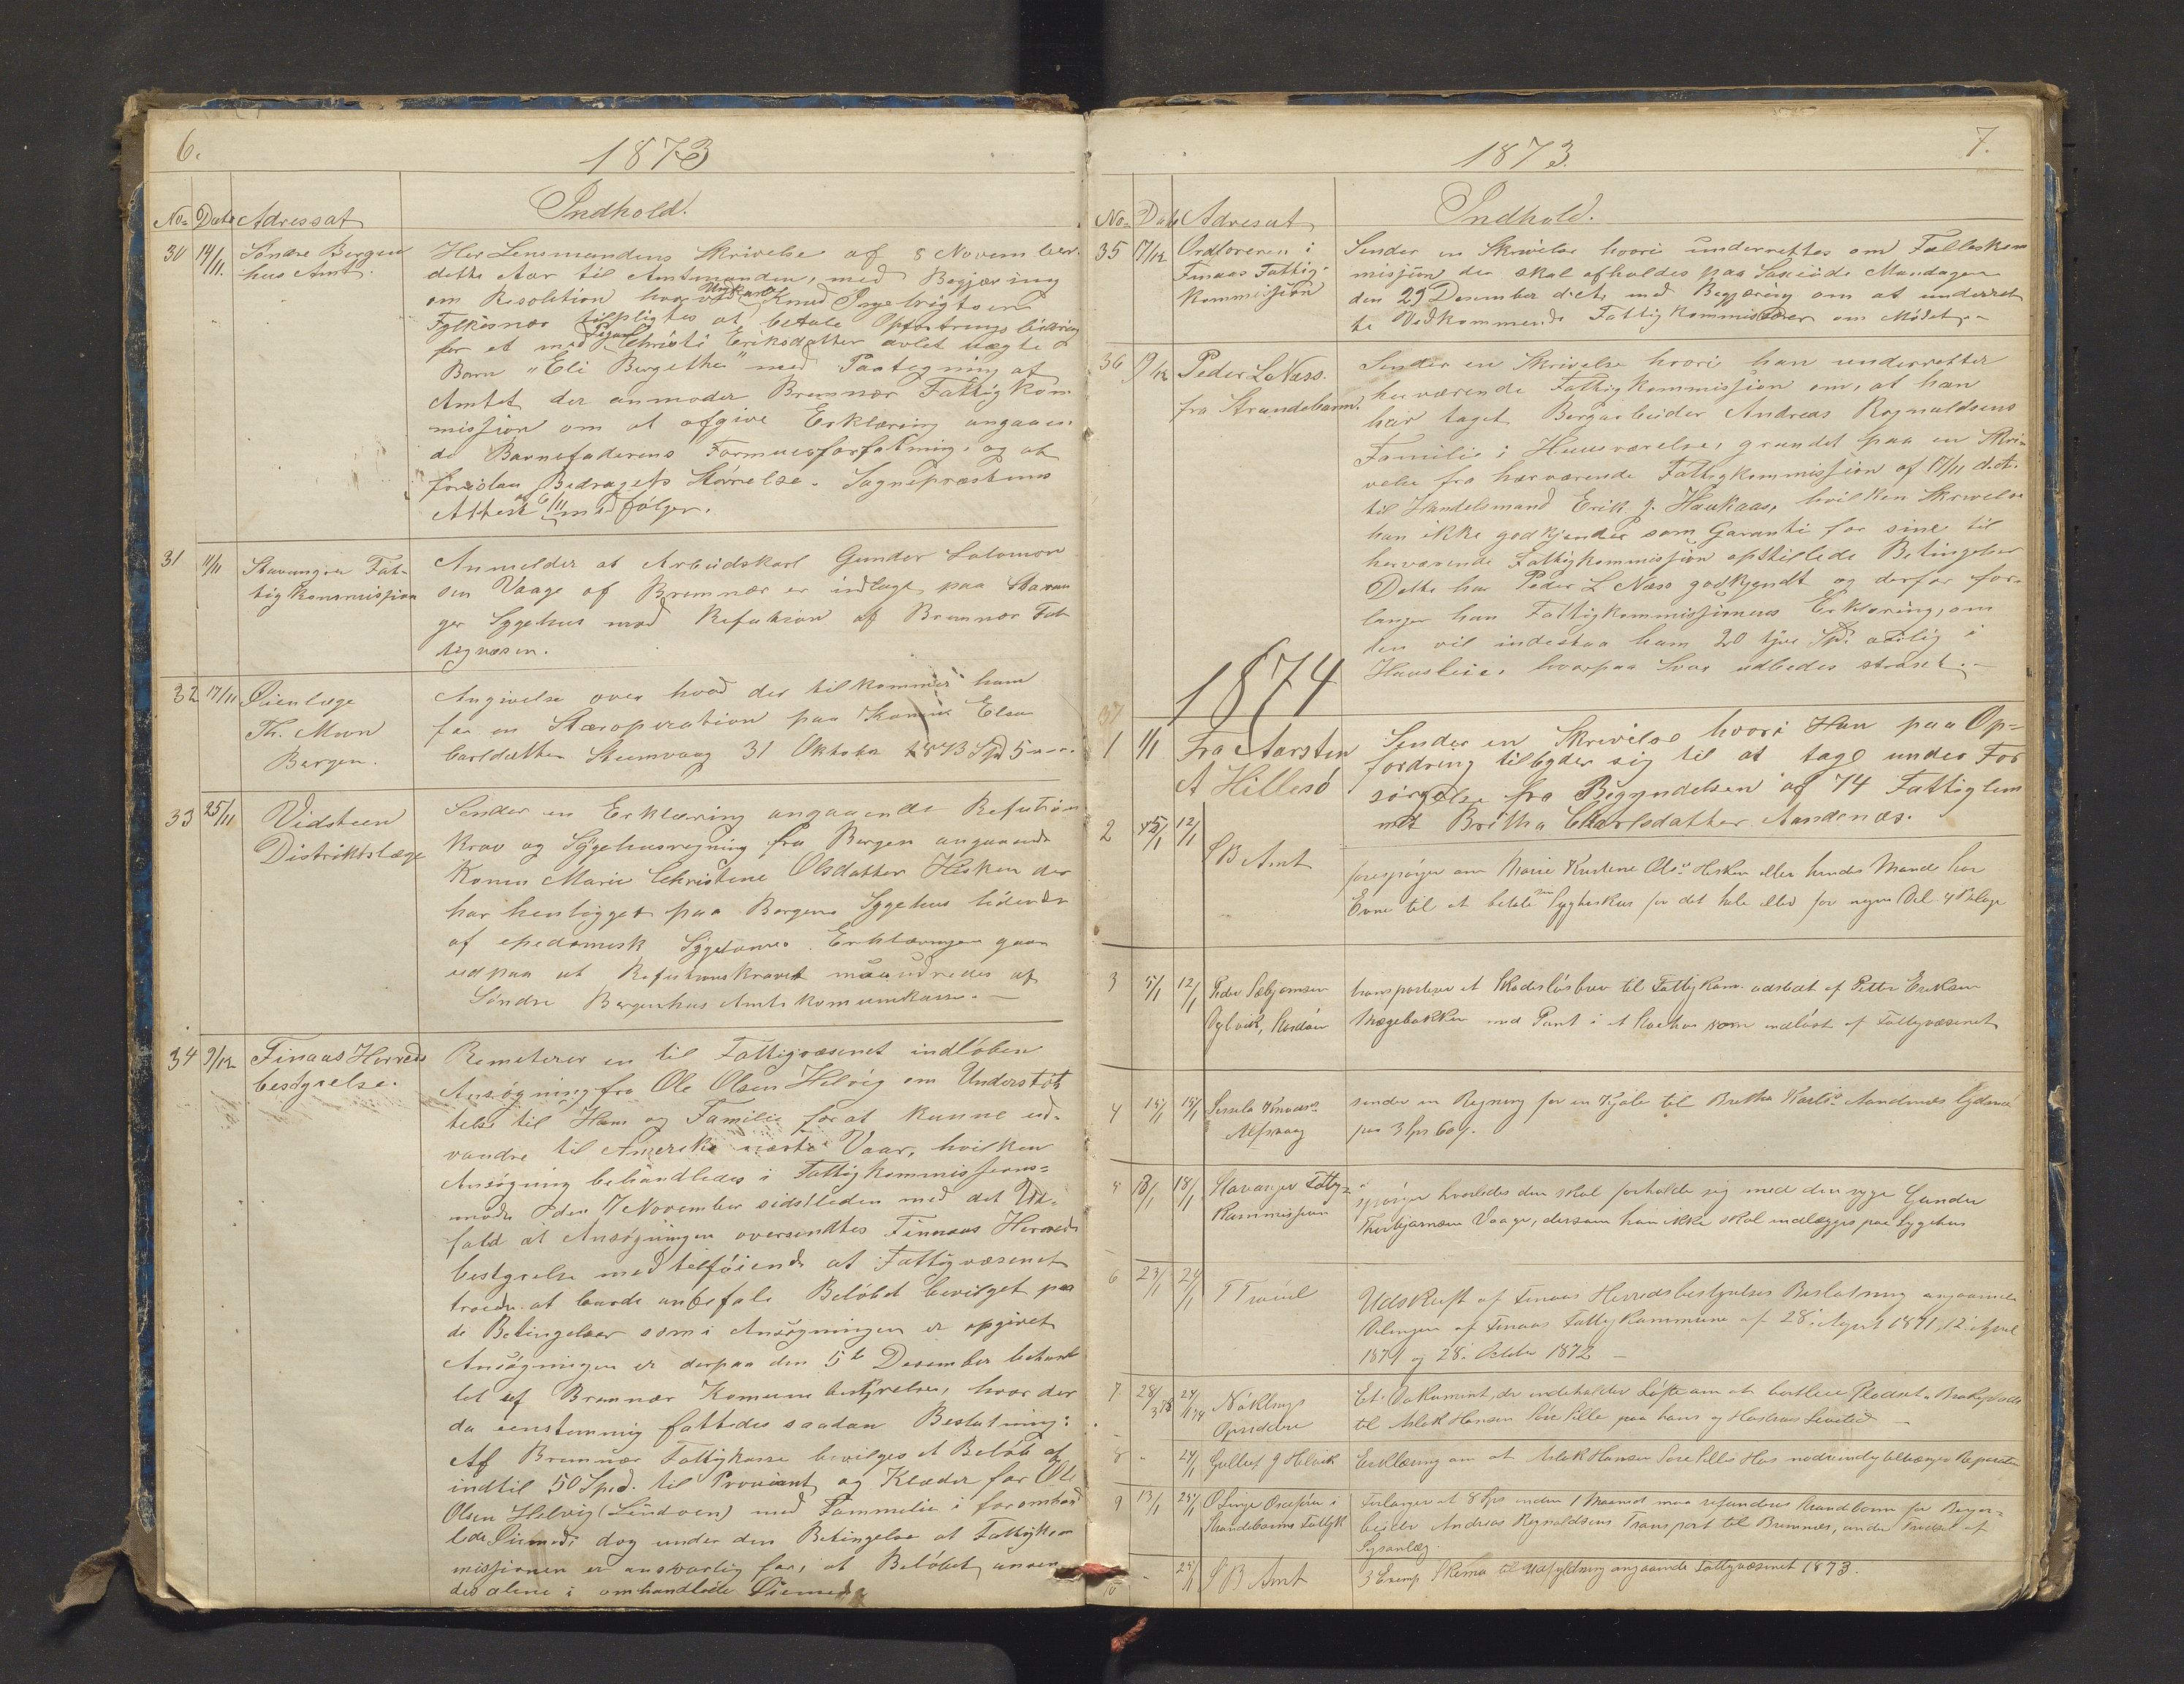 6.
1873
No= Date Adressat Indhold.
30 14/11. Söndre Bergen
hus Amt.
Her Lensmandens Skrivelse af 8 Novem ber
dette Aar til Amtmanden, med Begjæring
om Resolution hvorved Ungkarl Knud Ingebrigtsen
Fylkesnæs tilpligtes at betale Opfostrings bidrag
for et med Pigen Christi Eriksdatter avlet uægte
Barn "Eli Bergethe" med Paategning af
Amtet der anmoder Bremnæs Fattigkom
mission om at afgive Erklæring angaaen-
de Barnefaderens Formuesforfatning, og at
foreslaa Bidragets Störrelse. Sognepræstens
Attest af 6/11 medfölger.
31 11/11 Stavanger Fat-
tigkommission
Anmelder at Arbeidskarl Gunder Salomon
sen Vaage af Bremnæs er indlagt paa Stavan
ger Sygehus mod Refusion af Bremnæs Fat
tigvæsen.
32 17/11 Öienlæge
Th. Moon
Bergen.
Angivelse over hvad der tilkommer ham
for en Stæroperation paa Konen Elsa
Carlsdatter Steensvaag 31 Oktober 1873 Spd 5
33 25/11 Vidsteen
Distriktslæge
Sender en Erklæring angaaende Refusions
krav og Sygehusregning fra Bergen angaaende
Konen Marie Christine Olsdatter Hisken der
har henligget paa Bergens Sygehus lidende
af epedemisk Sygdom. Erklæringen gaar
ud paa at Refusionskravet maa udredes af
Söndre Bergenhus Amts komunekasse.
34 9/12 Finaas Herreds
bestyrelse.
Remiterer en til Fattigvæsenet indlöben
Ansögning fra Ole Olsen Helvig om Understöt
telse til Ham og Familie for at kunne ud-
vandre til Amerika næste Vaar, hvilken
Ansögning behandledes i Fattigkommissions=
møde den 7 November sidstleden med det Ud-
fald at Ansögningen oversendtes Finnaas Herreds
bestyrelse med tilföiende at Fattigvæsenet
troede at burde anbefale Belöbet bevilget paa
de Betingelser som i Ansögningen er opgivet
Ansögningen er derpaa den 5te Desember behand
let af Bremnæs Komunebestyrelse, hvor der
da eenstemmig fattedes saadan Beslutning:
Af Bremnæs Fattigkasse bevilges et Belöb af
indtil 50 Spd. til Proviant og Klæder for Ole
Olsen Helvig (Lindoen) med Fammilie i foromhand
lede Öiemed, dog under den Betingelse at Fattigkom
missionen er ansvarlig for, at Belöbet anven
des alene i omhandlede Öiemed
1873.
7.
No= Date Adresat Indhold.
35 17/12 Ordföreren i
Finaas Fattig-
kommission
Sender en Skrivelse hvori underrettes om Fælleskom
misjon der skal afholdes paa Mandagen
den 29 Desember d.A. med Begjæring om at underret
te Vedkommende Fattigkommisærer om Mödet.
36 19/12 Peder L Næss.
fra Strandebarm.
Sender en Skrivelse hvori han underretter
herværende Fattigkommission om, at han
har taget Bergarbeider Andreas Ragnaldsens
Familie i Huusværelse, grundet paa en Skri-
velse fra herværende Fattigkommission af 17/11 d.A.
til Handelsmand Erik J. Haukaas, hvilken Skrivelse
han ikke godkjender som Garanti for sine til
herværende Fattigkommission opstillede Betingelser
Dette har Peder L Næss godkjendt og derfor for-
langer han Fattigkommissionens Erklæring, om
den vil indestaa ham 20 tyve Spd. aarlig i
Huusleie, hvorpaa Svar udbedes strakst.
1874
37
1 1/1 Fra Aarsten
A Hillesö
Sender en Skrivelse hvori Han paa Op=
fordring tilbyder sig til at tage under For
sörgelse fra Begyndelsen af 74 Fattiglem
met Britha Charlsdatter Aandenæs.
2 12/1 S B Amt
forespörger om Marie Kristine Olsd Hisken eller hendes Mand har
Evne til at betale Sygheskur for det hele eller for nogen Del
3 5/1 12/1 Peder
transporterer et Skadeslösbrev til Fattigkom. udstædt af Petter Eriksen
Mægebakken med Pant i et som indlöst af Fattigvæsenet
4 15/1 18/1 Sissela Knudsd
Alfsvaag
sender en Regning for en Kjole til Britha Karlsd Aandenæs
paa 3 Ort 60 s.
5 13/1 18/1 Stavanger Fattig=
Kommission
spörger hvorledes den skal forholde sig med den syge Gunder
Thorbjörnsen Vaage, dersom han ikke skal indlægges paa Sygehus
6 23/1 24/1 T Travel
Udskrift af Finaas Herredsbestyrelses Beslutning angaaende
Delingen af Finaas Fattigkommune af 28. August 1871, 12. April
1871 og 28. Octbr 1872
7 24/1 74 Nöklings
Opsiddere
Et Dokument, der indeholder Löfte om at bortleie Pladset
til Aslak Hansen paa hans og Hustrus Levetid
8 24/1 Gullef J Helvik
Erklæring om at Aslak Hansen Hus nödvendig tiltrænger Reparation
9 13/1 24/1 O i
Strandebarms Fattigk
Forlanger at 8 Spd inden 1 Maaned maa refunderes Strandebarm for Bergar-
beider Andreas Ragnaldsens Transport til Bremnæs, under Trudsel af
Sagsanlæg.
10 24/1 S B Amt
3 Exemp Skema til Udfyldning angaaende Fattigvæsenet 1873.